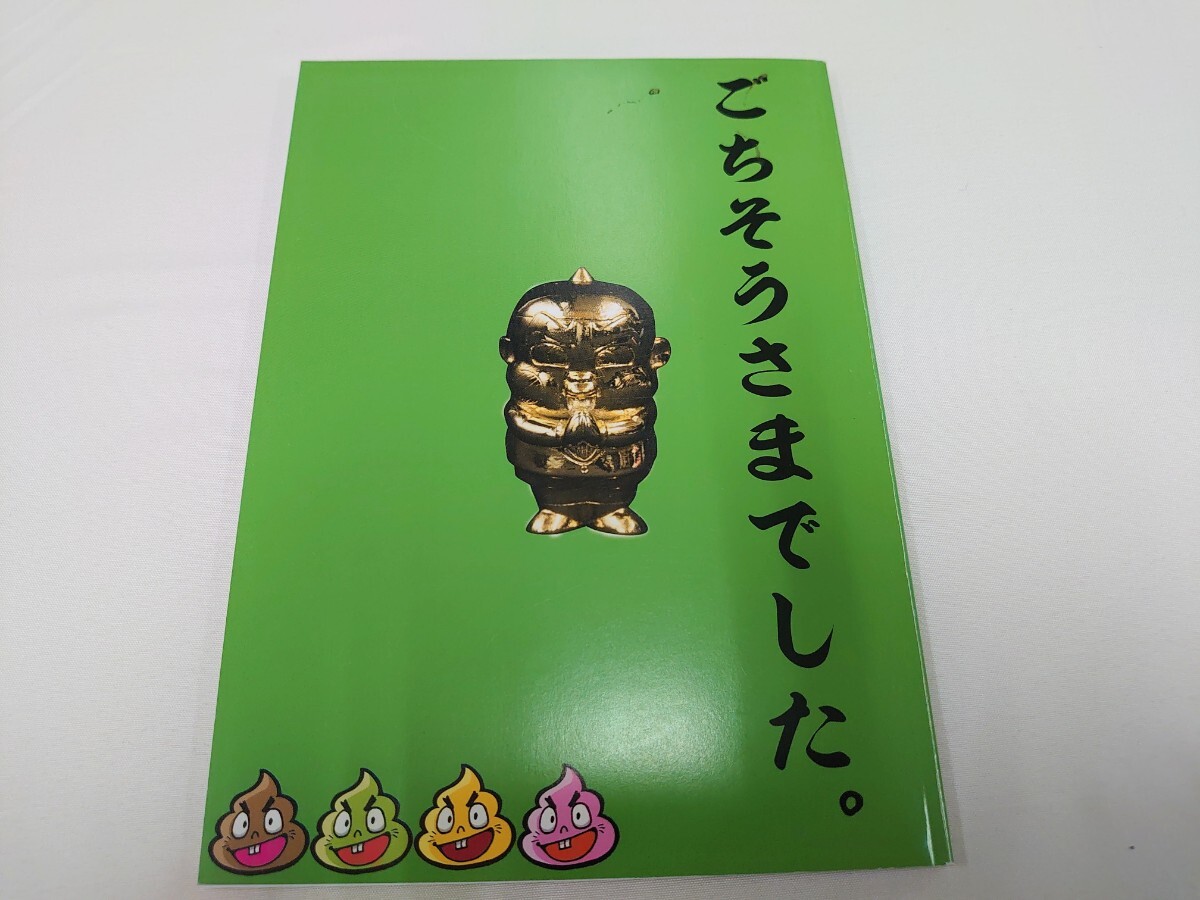 ごちそうさまでした。